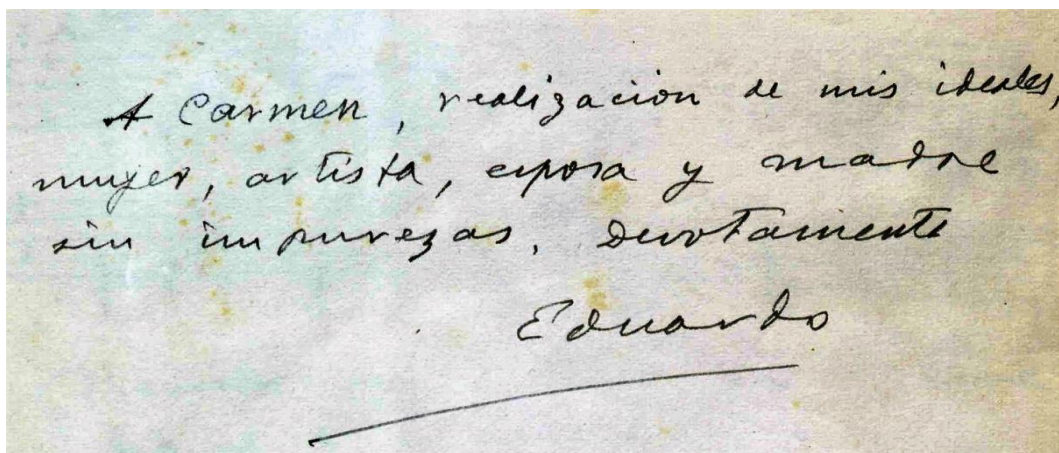 A Carmen, realizacion de mis ideales,
mujer, artista, esposa y madre
sin impurezas. Devotamente
Eduardo